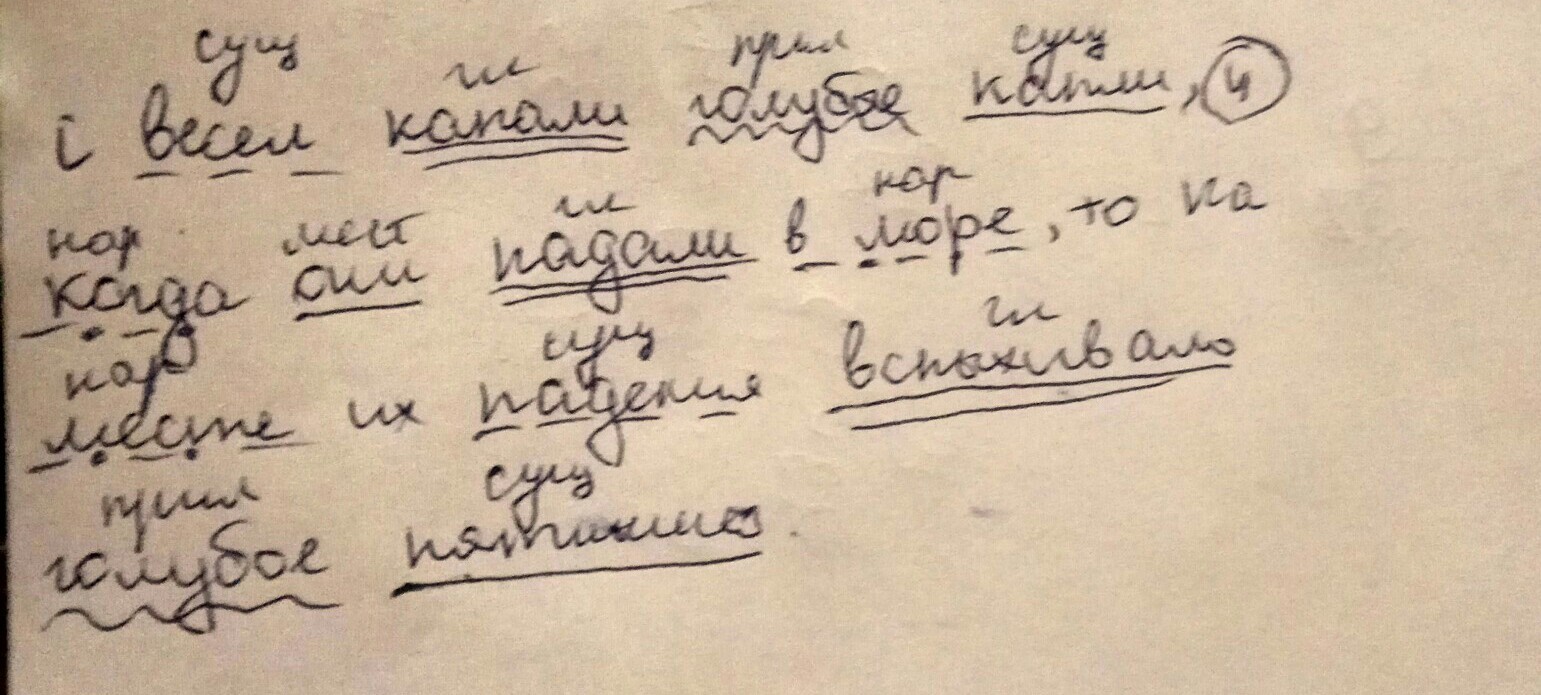 сущ гл прил сущ
С весел капали голубые капли, и
нар мест гл нар
когда они падали в море, то на
нар сущ гл
месте их падения вспыхивало
прил сущ
голубое пятнышко.